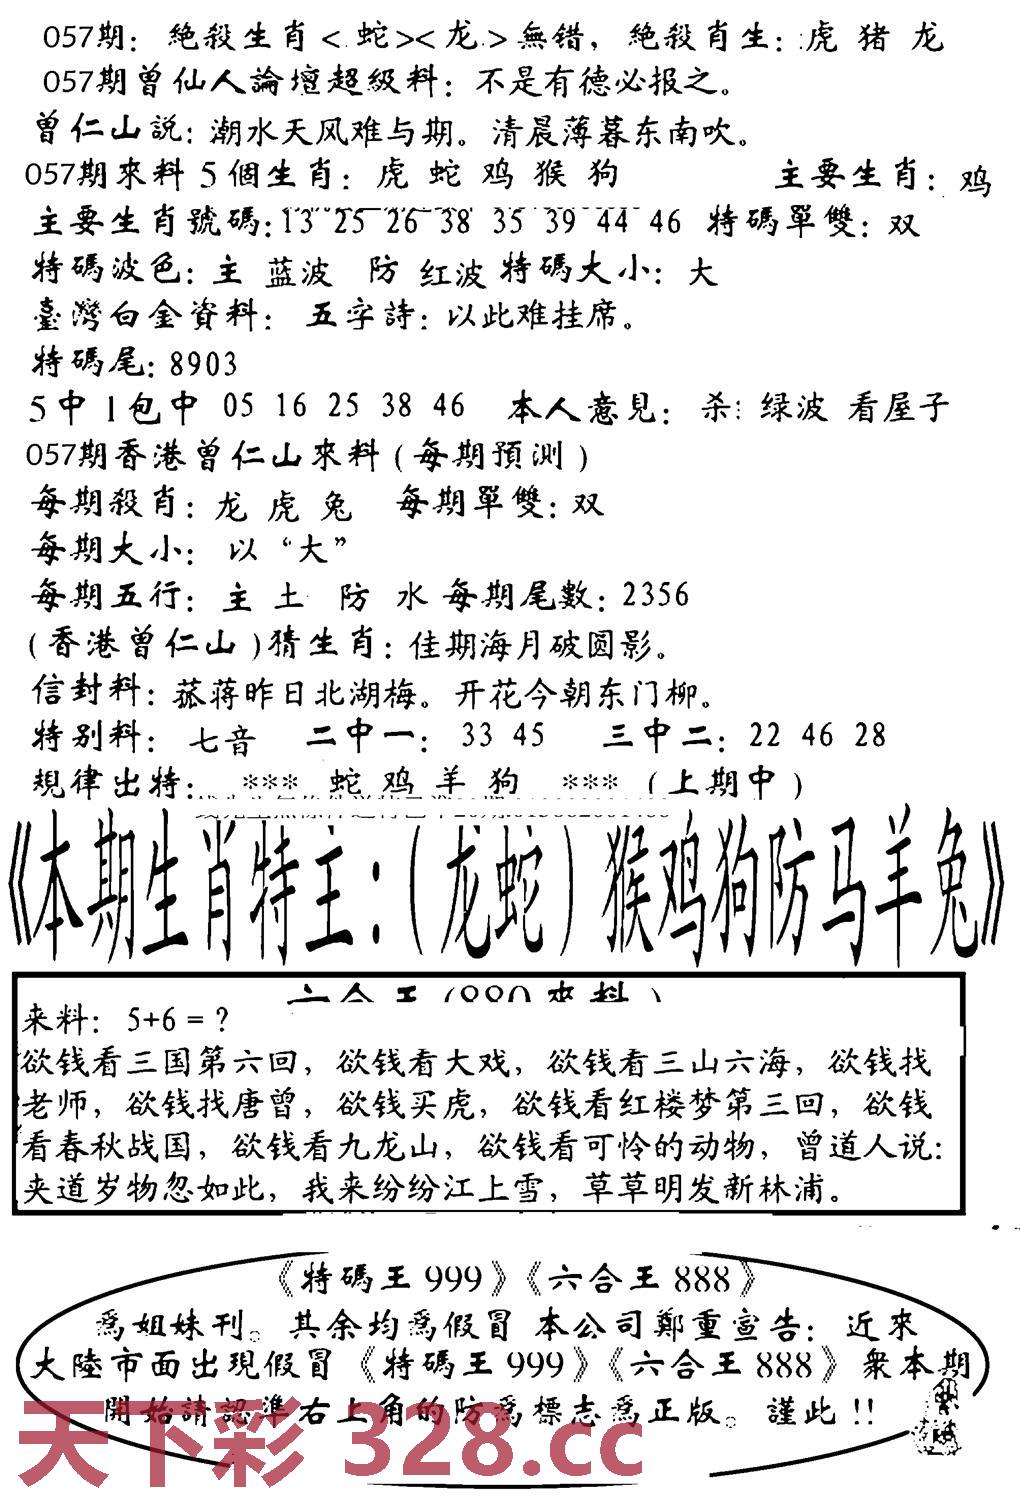 057期：絶殺生肖<蛇><龙>無错，絶殺肖生：虎 猪 龙
057期曾仙人論壇超級料：不是有德必报之。
曾仁山説：潮水天风难与期。清晨薄暮东南吹。
057期來料5個生肖：虎 蛇 鸡 猴 狗 主要生肖：鸡
主要生肖號碼：13 25 26 38 35 39 44 46 特碼單雙：双
特碼波色：主 蓝波 防 红波 特碼大小：大
臺灣白金資料： 五字詩：以此难挂席。
特碼尾：8903
5中1包中 05 16 25 38 46 本人意見：杀：绿波 看屋子
057期香港曾仁山來料(每期預測)
每期殺肖：龙 虎 兔 每期單雙：双
每期大小：以“大”
每期五行：主 土 防 水 每期尾數：2356
(香港曾仁山)猜生肖：佳期海月破圆影。
信封料：菰蒋昨日北湖梅。开花今朝东门柳。
特别料：七音 二中一：33 45 三中二：22 46 28
規律出特： *** 蛇 鸡 羊 狗 *** (上期中)
《本期生肖特主：(龙蛇)猴鸡狗防马羊兔》
六合王(880來料)
来料：5+6=?
欲钱看三国第六回，欲钱看大戏，欲钱看三山六海，欲钱找
老师，欲钱找唐曾，欲钱买虎，欲钱看红楼梦第三回，欲钱
看春秋战国，欲钱看九龙山，欲钱看可怜的动物，曾道人说：
夹道岁物忽如此，我来纷纷江上雪，草草明发新林浦。
《特碼王999》《六合王888》
爲姐妹刊。其余均爲假冒 本公司鄭重宣告：近來
大陸市面出現假冒《特碼王999》《六合王888》衆本期
開始請認準右上角的防爲標志爲正版。謹此!!
天下彩 328.cc